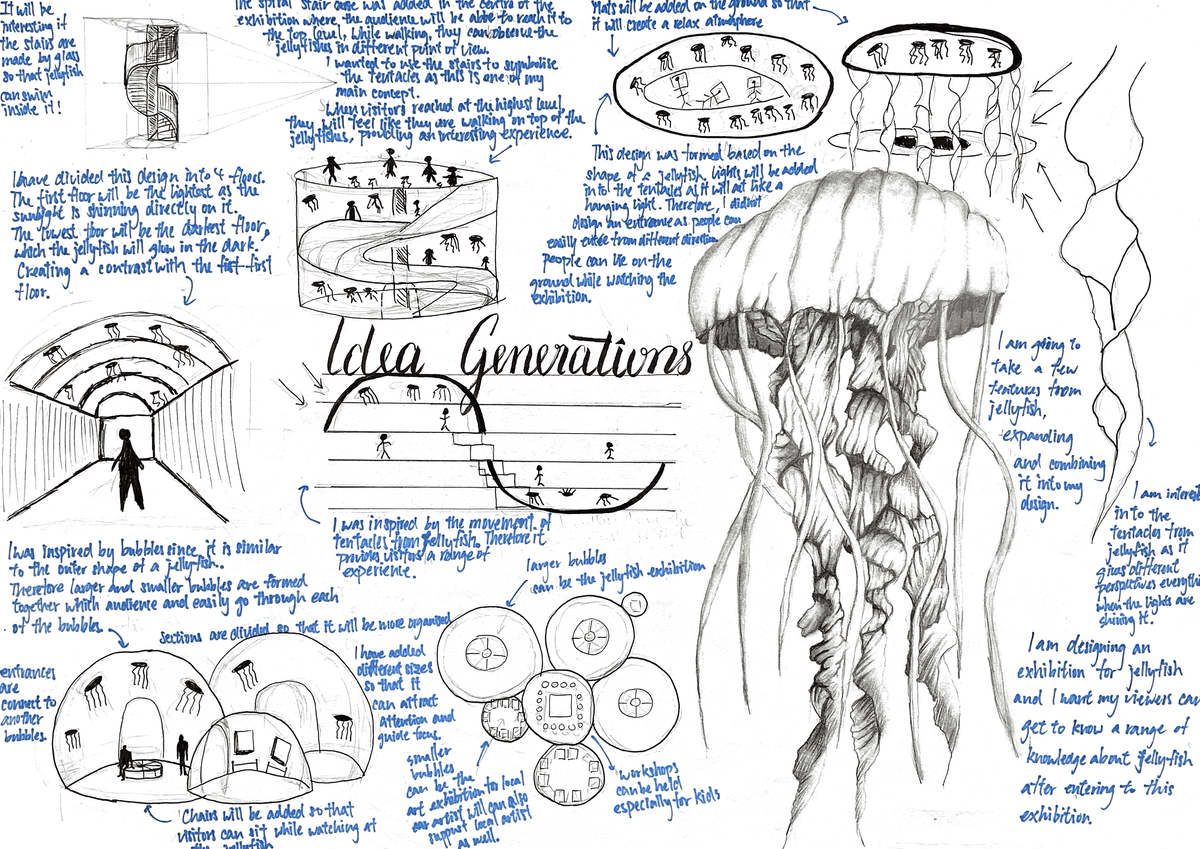 It will be
interesting if
the stairs are
made by glass
so that jellyfish
can swim
inside it!
The spiral stair case was added in the centre of the
exhibition where the audience will be able to reach it to
the top level, while walking, they can observe the
jellyfishes in different point of view.
I wanted to use the stairs to symbolise
the tentacles as this is one of my
main concept.
When visitors reached at the highest level,
they will feel like they are walking on top of the
jellyfishes, providing an interesting experience.
Mats will be added on the ground so that
it will create a relax atmosphere
This design was formed based on the
shape of a jellyfish. Lights will be added
into the tentacles as it will act like a
hanging light. Therefore, I did not
design an entrance as people can
easily enter from different direction
people can lie on the
ground while watching the
exhibition.
I have divided this design into 4 floors.
The first floor will be the lightest as the
sunlight is shinning directly on it.
The lowest floor will be the darkest floor,
which the jellyfish will glow in the dark.
Creating a contrast with the first
floor.
Idea Generations
I was inspired by the movement of
tentacles from jellyfish. Therefore it
provides visitors a range of
experience.
I am going to
take a few
features from
jellyfish,
expanding
and combining
it into my
design.
I am interest
into the
tentacles from
jellyfish as it
gives different
perspectives everyti
when the lights are
shining it.
I was inspired by bubbles since it is similar
to the outer shape of a jellyfish.
Therefore larger and smaller bubbles are formed
together which audience and easily go through each
of the bubbles.
Sections are divided so that it will be more organised
entrances
are
connect to
another
bubbles.
I have added
different sizes
so that it
can attract
attention and
guide focus.
Chairs will be added so that
visitors can sit while watching at
the jellyfish
larger bubbles
can be the jellyfish exhibition
smaller
bubbles
can be the
art exhibition for local
artist will can also
support local artist
as well.
workshops
can be held
especially for kids
I am designing an
exhibition for jellyfish
and I want my viewers can
get to know a range of
knowledge about jellyfish
after entering to this
exhibition.